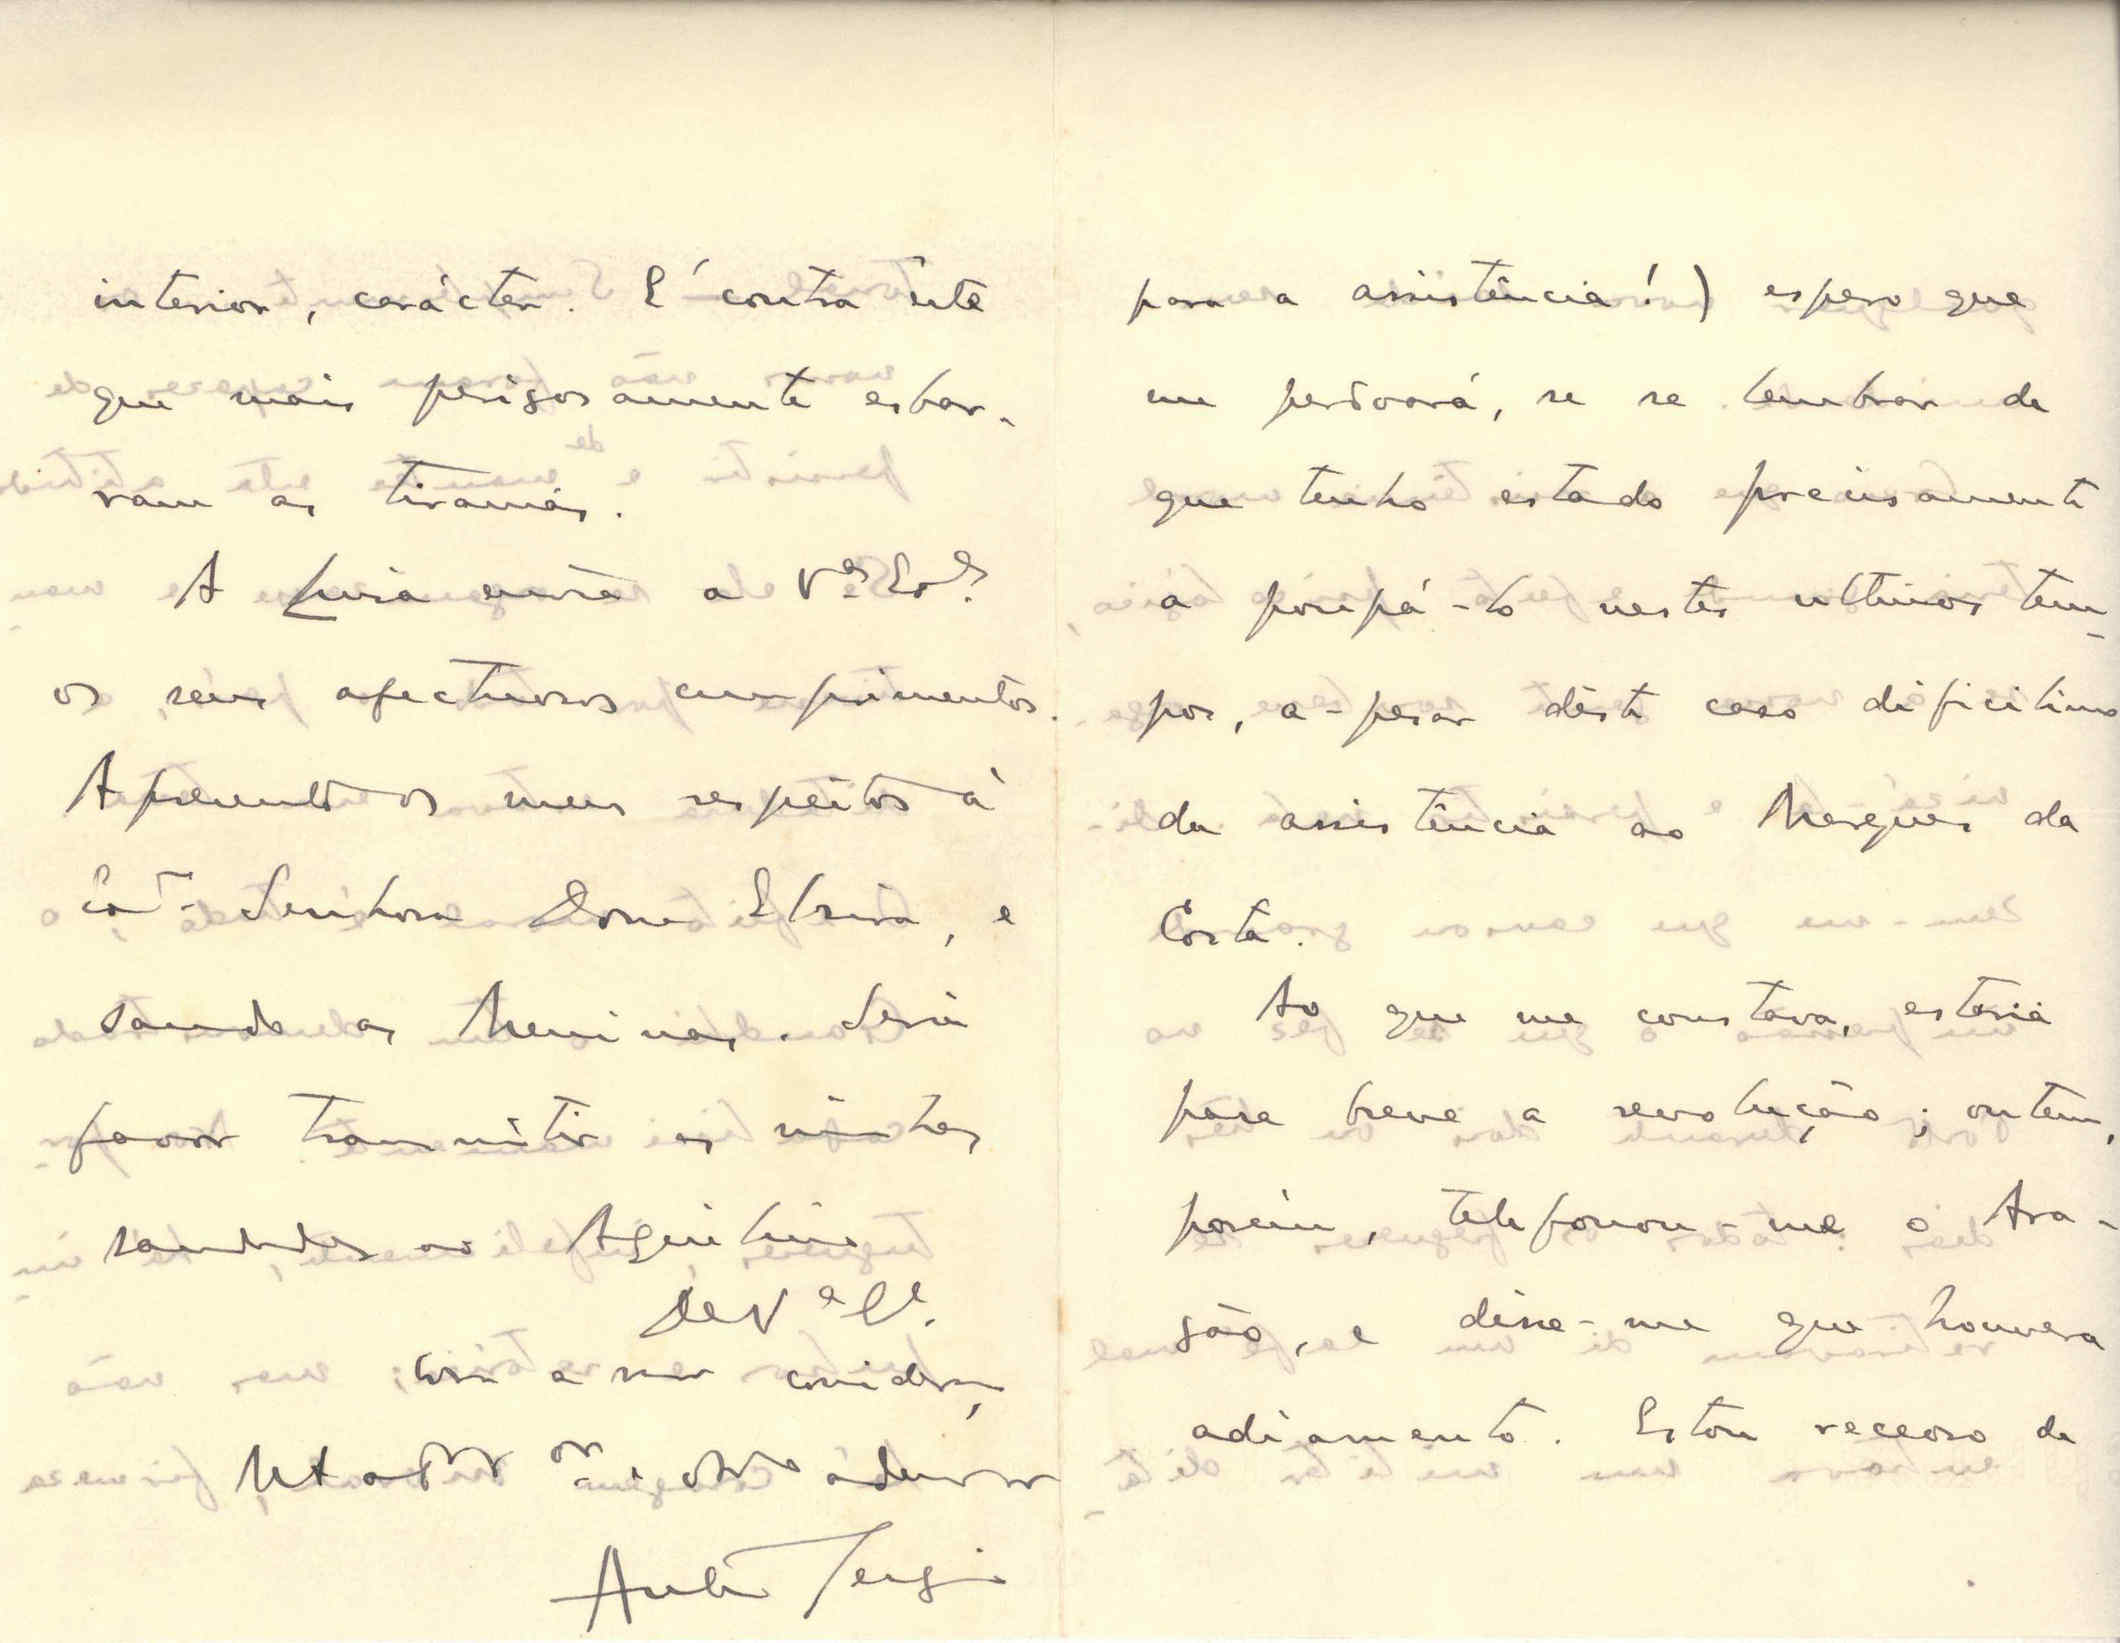 interior, carácter. É contra êste
que mais perigosamente esbar-
ram as tiranias.
A Luísa envia a V.as Ex.as
os seus afectuosos cumprimentos.
Apresento os meus respeitos à
Ex.ma Senhora Dona Elzira, e
saúdo as Meninas. Seria
favor transmitir as minhas
saudades ao Aquilino
De V.a Ex.a
com a maior consideração,
Mt.o am.o e
admor
António Sérgio
para a assistência!) espero que
me perdoará, se se lembrar de
que tenho estado precisamente
a poupá-lo nestes ultimos tem-
pos, a-pesar dêste caso dificílimo
da assistência ao Marques da
Costa.
Ao que me constava, estaria
para breve a revolução; ontem,
porém, telefonou-me o Ara-
gão, e disse-me que houvera
adiamento. Estou receoso de